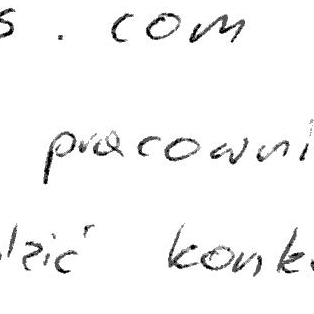 s . com
pracowni
dzić konk